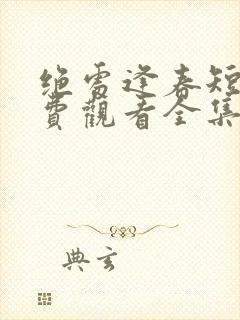 绝处逢春短
费觀看全集
典玄